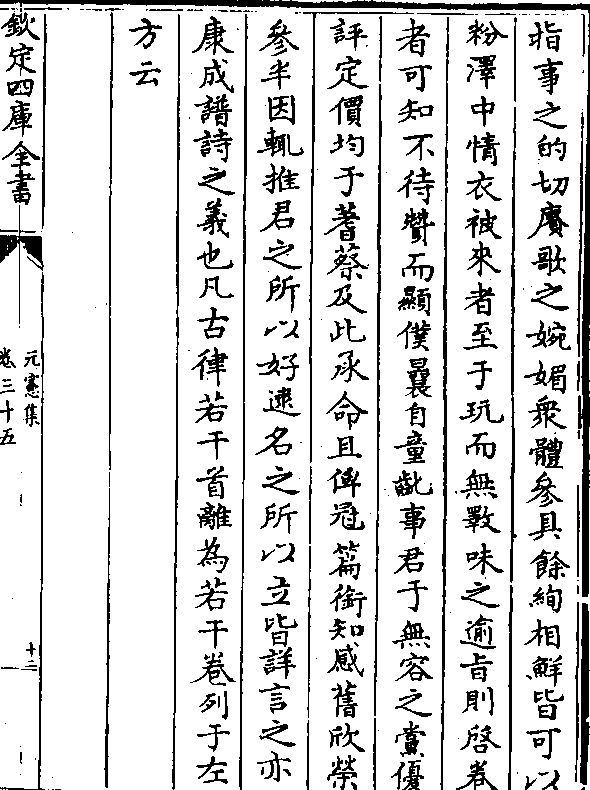 指事之的切賡歌之婉媚衆體參具餘絢相鮮皆可以
粉澤中情衣被來者至于玩而無斁味之逾旨則啓卷
者可知不待贊而顯僕曩自童齓事君于無容之黨優
評定價均于蓍蔡及此承命且俾冠篇銜知感舊欣榮
參半因輒推君之所以好逑名之所以立皆詳言之亦
康成譜詩之義也凡古律若干首離為若干卷列于左
方云
欽定四庫全書
元憲集
卷三十五
十二